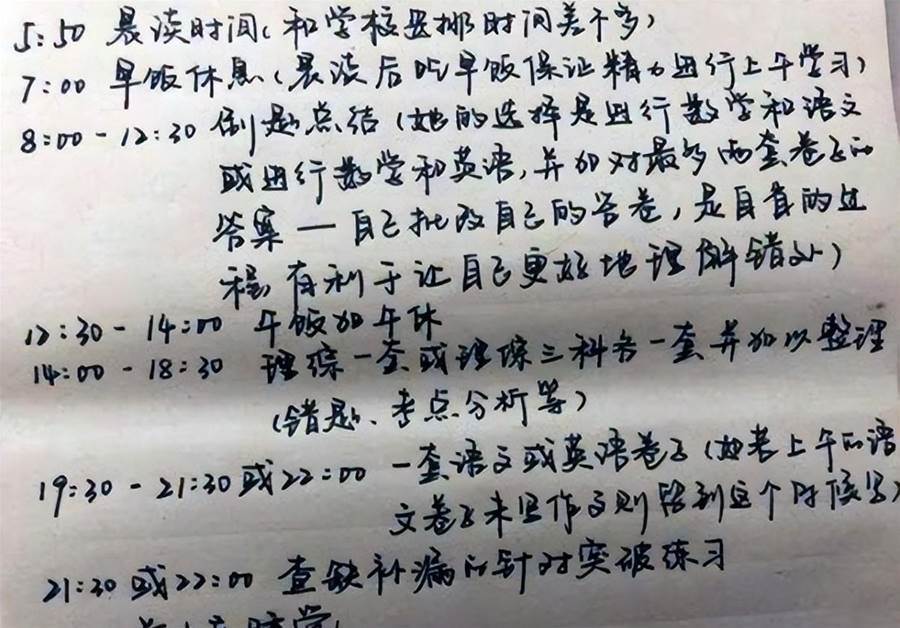 5:50 晨读时间(和学校安排时间差不多)
7:00 早饭休息(晨读后吃早饭保证精力进行上午学习)
8:00-12:30 刷题总结(她的选择是进行数学和语文
或进行数学和英语,并加对最多两套卷子的
答案—自己批改自己的答卷,是自省的过
程,有利于让自己更好地理解错处)
12:30-14:00 午饭加午休
14:00-18:30 理综一套或理综三科各一套并加以整理
(错题、考点分析等)
19:30-21:30或22:00 一套语文或英语卷子(如若上午的语
文卷子未写作文则留到这个时候写)
21:30或22:00 查缺补漏的针对突破练习